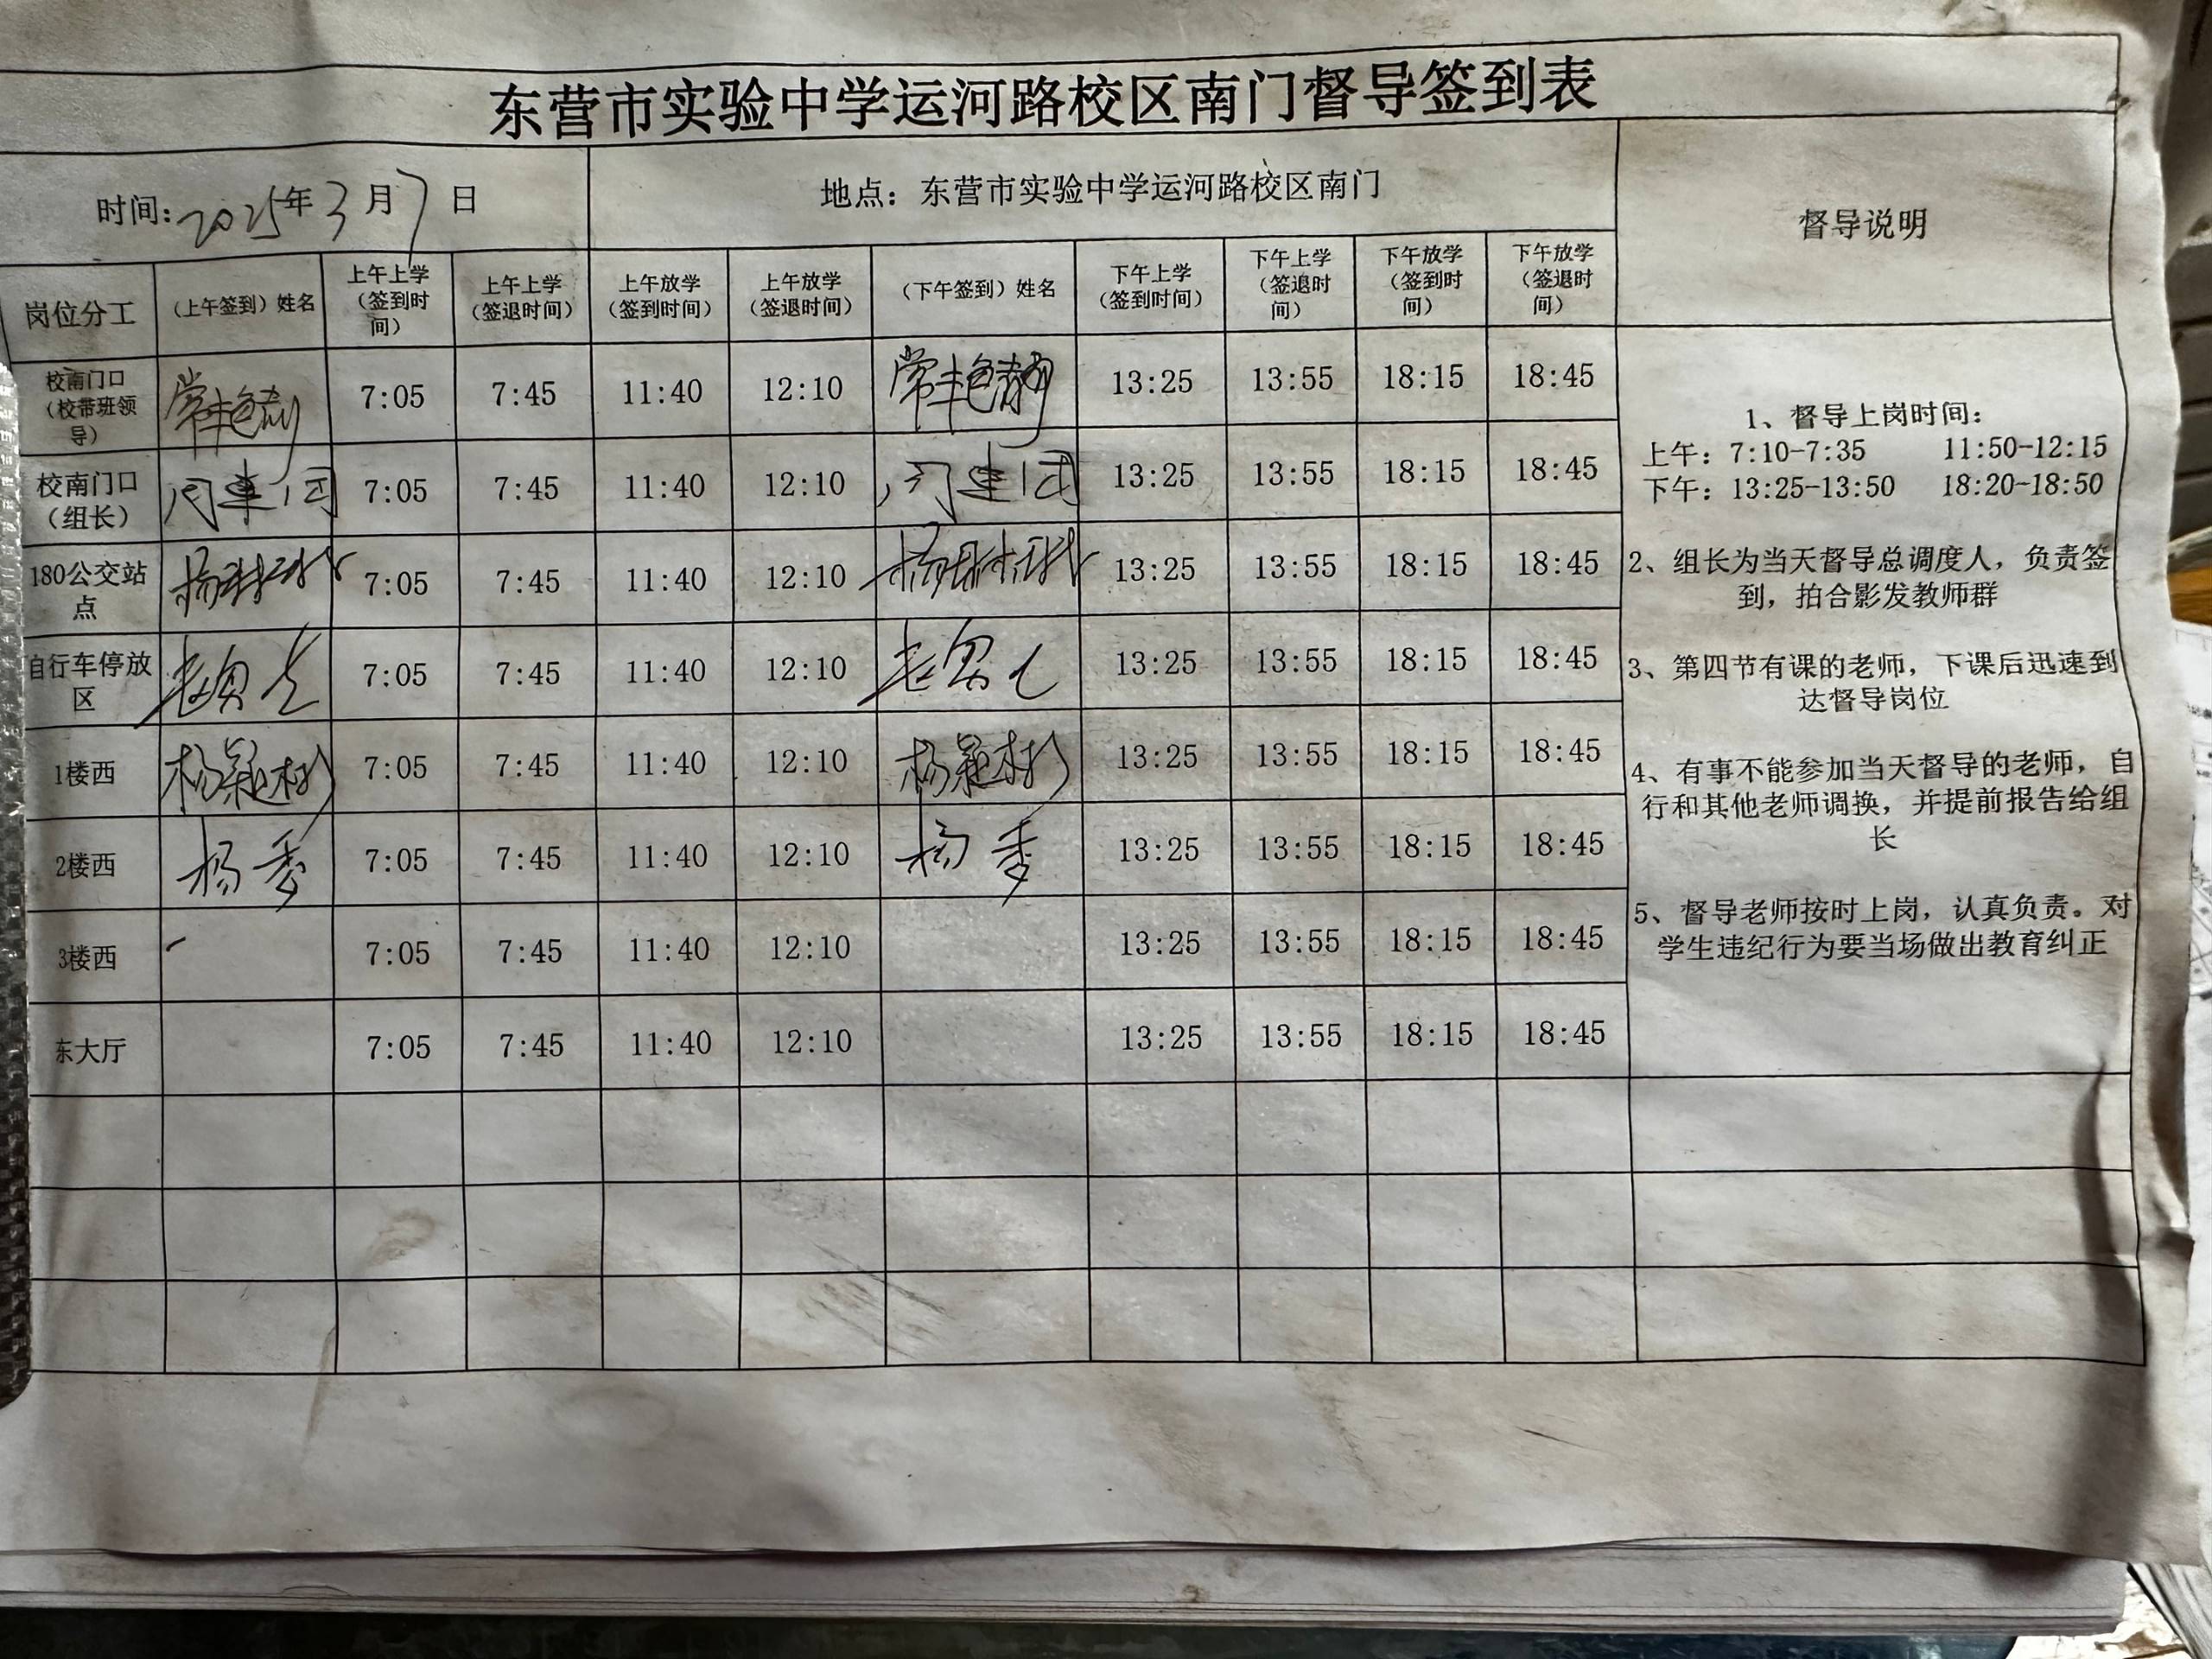 东营市实验中学运河路校区南门督导签到表
时间：2025年3月7日 地点：东营市实验中学运河路校区南门 督导说明
岗位分工 （上午签到）姓名 上午上学（签到时间） 上午上学（签退时间） 上午放学（签到时间） 上午放学（签退时间） （下午签到）姓名 下午上学（签到时间） 下午上学（签退时间） 下午放学（签到时间） 下午放学（签退时间）
校南门口（校带班领导） 7:05 7:45 11:40 12:10 13:25 13:55 18:15 18:45
校南门口（组长） 7:05 7:45 11:40 12:10 13:25 13:55 18:15 18:45
180公交站点 7:05 7:45 11:40 12:10 13:25 13:55 18:15 18:45
自行车停放区 7:05 7:45 11:40 12:10 13:25 13:55 18:15 18:45
1楼西 杨颖彬 7:05 7:45 11:40 12:10 杨颖彬 13:25 13:55 18:15 18:45
2楼西 杨季 7:05 7:45 11:40 12:10 杨季 13:25 13:55 18:15 18:45
3楼西 7:05 7:45 11:40 12:10 13:25 13:55 18:15 18:45
东大厅 7:05 7:45 11:40 12:10 13:25 13:55 18:15 18:45
1、督导上岗时间：
上午：7:10-7:35 11:50-12:15
下午：13:25-13:50 18:20-18:50
2、组长为当天督导总调度人，负责签
到，拍合影发教师群
3、第四节有课的老师，下课后迅速到
达督导岗位
4、有事不能参加当天督导的老师，自
行和其他老师调换，并提前报告给组
长
5、督导老师按时上岗，认真负责。对
学生违纪行为要当场做出教育纠正